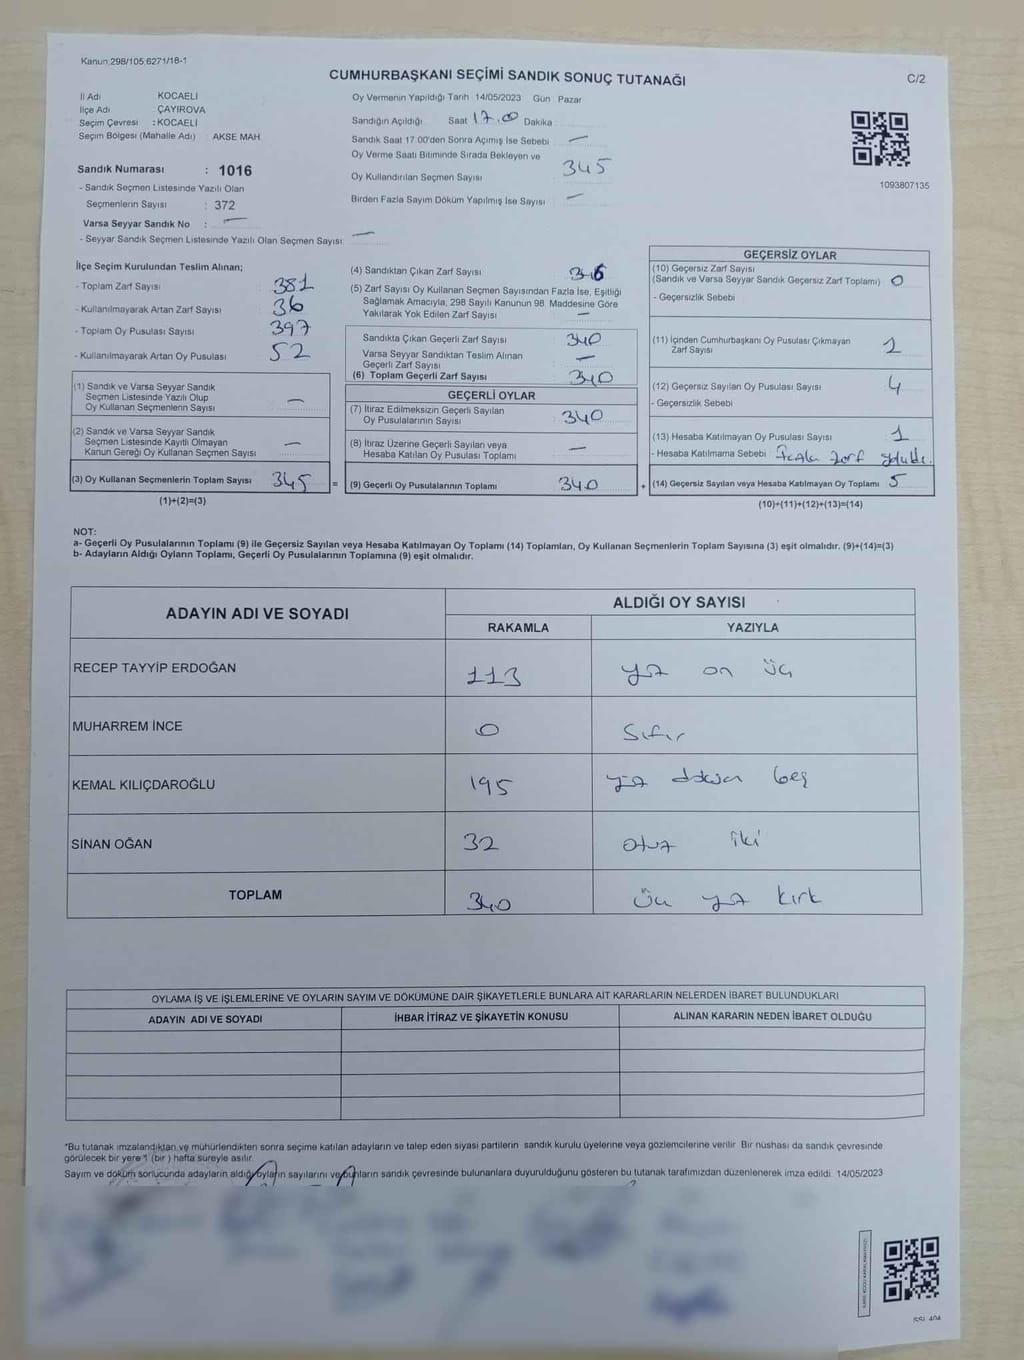 Kanun.298/105.6271/18-1
CUMHURBAŞKANI SEÇİMİ SANDIK SONUÇ TUTANAĞI
C/2
İl Adı KOCAELİ
İlçe Adı ÇAYIROVA
Seçim Çevresi : KOCAELİ
Seçim Bölgesi (Mahalle Adı) : AKSE MAH.
Oy Vermenin Yapıldığı Tarih 14/05/2023 Gün : Pazar
Sandığın Açıldığı Saat 17.00 Dakika
Sandık Saat 17.00'den Sonra Açımış İse Sebebi —
Oy Verme Saati Bitiminde Sırada Bekleyen ve
Oy Kullandırılan Seçmen Sayısı 345
Birden Fazla Sayım Döküm Yapılmış İse Sayısı —
1093807135
Sandık Numarası : 1016
- Sandık Seçmen Listesinde Yazılı Olan
Seçmenlerin Sayısı : 372
Varsa Seyyar Sandık No : —
- Seyyar Sandık Seçmen Listesinde Yazılı Olan Seçmen Sayısı: —
İlçe Seçim Kurulundan Teslim Alınan;
- Toplam Zarf Sayısı 381
- Kullanılmayarak Artan Zarf Sayısı 36
- Toplam Oy Pusulası Sayısı 397
- Kullanılmayarak Artan Oy Pusulası 52
(1) Sandık ve Varsa Seyyar Sandık
Seçmen Listesinde Yazılı Olup
Oy Kullanan Seçmenlerin Sayısı —
(2) Sandık ve Varsa Seyyar Sandık
Seçmen Listesinde Kayıtlı Olmayan
Kanun Gereği Oy Kullanan Seçmen Sayısı —
(3) Oy Kullanan Seçmenlerin Toplam Sayısı 345 =
(1)+(2)=(3)
(4) Sandıktan Çıkan Zarf Sayısı 346
(5) Zarf Sayısı Oy Kullanan Seçmen Sayısından Fazla İse, Eşitliği
Sağlamak Amacıyla, 298 Sayılı Kanunun 98. Maddesine Göre
Yakılarak Yok Edilen Zarf Sayısı —
Sandıkta Çıkan Geçerli Zarf Sayısı 340
Varsa Seyyar Sandıktan Teslim Alınan
Geçerli Zarf Sayısı —
(6) Toplam Geçerli Zarf Sayısı 340
GEÇERLİ OYLAR
(7) İtiraz Edilmeksizin Geçerli Sayılan
Oy Pusulalarının Sayısı 340
(8) İtiraz Üzerine Geçerli Sayılan veya
Hesaba Katılan Oy Pusulası Toplamı —
(9) Geçerli Oy Pusulalarının Toplamı 340 +
GEÇERSİZ OYLAR
(10) Geçersiz Zarf Sayısı
(Sandık ve Varsa Seyyar Sandık Geçersiz Zarf Toplamı) 0
- Geçersizlik Sebebi
(11) İçinden Cumhurbaşkanı Oy Pusulası Çıkmayan
Zarf Sayısı 1
(12) Geçersiz Sayılan Oy Pusulası Sayısı 4
- Geçersizlik Sebebi
(13) Hesaba Katılmayan Oy Pusulası Sayısı 1
- Hesaba Katılmama Sebebi Fazla zarf
(14) Geçersiz Sayılan veya Hesaba Katılmayan Oy Toplamı 5
(10)+(11)+(12)+(13)=(14)
NOT:
a- Geçerli Oy Pusulalarının Toplamı (9) ile Geçersiz Sayılan veya Hesaba Katılmayan Oy Toplamı (14) Toplamları, Oy Kullanan Seçmenlerin Toplam Sayısına (3) eşit olmalıdır. (9)+(14)=(3)
b- Adayların Aldığı Oyların Toplamı, Geçerli Oy Pusulalarının Toplamına (9) eşit olmalıdır.
ADAYIN ADI VE SOYADI ALDIĞI OY SAYISI
RAKAMLA YAZIYLA
RECEP TAYYİP ERDOĞAN 113 yüz on üç
MUHARREM İNCE 0 Sıfır
KEMAL KILIÇDAROĞLU 195 yüz doksan beş
SİNAN OĞAN 32 otuz iki
TOPLAM 340 üç yüz kırk
OYLAMA İŞ VE İŞLEMLERİNE VE OYLARIN SAYIM VE DÖKÜMÜNE DAİR ŞİKAYETLERLE BUNLARA AİT KARARLARIN NELERDEN İBARET BULUNDUKLARI
ADAYIN ADI VE SOYADI İHBAR İTİRAZ VE ŞİKAYETİN KONUSU ALINAN KARARIN NEDEN İBARET OLDUĞU
*Bu tutanak imzalandıktan ve mühürlendikten sonra seçime katılan adayların ve talep eden siyasi partilerin sandık kurulu üyelerine veya gözlemcilerine verilir. Bir nüshası da sandık çevresinde
görülecek bir yere 1 (bir) hafta süreyle asılır.
Sayım ve döküm sonucunda adayların aldığı oyların sayılarını ve bunların sandık çevresinde bulunanlara duyurulduğunu gösteren bu tutanak tarafımızdan düzenlenerek imza edildi. 14/05/2023